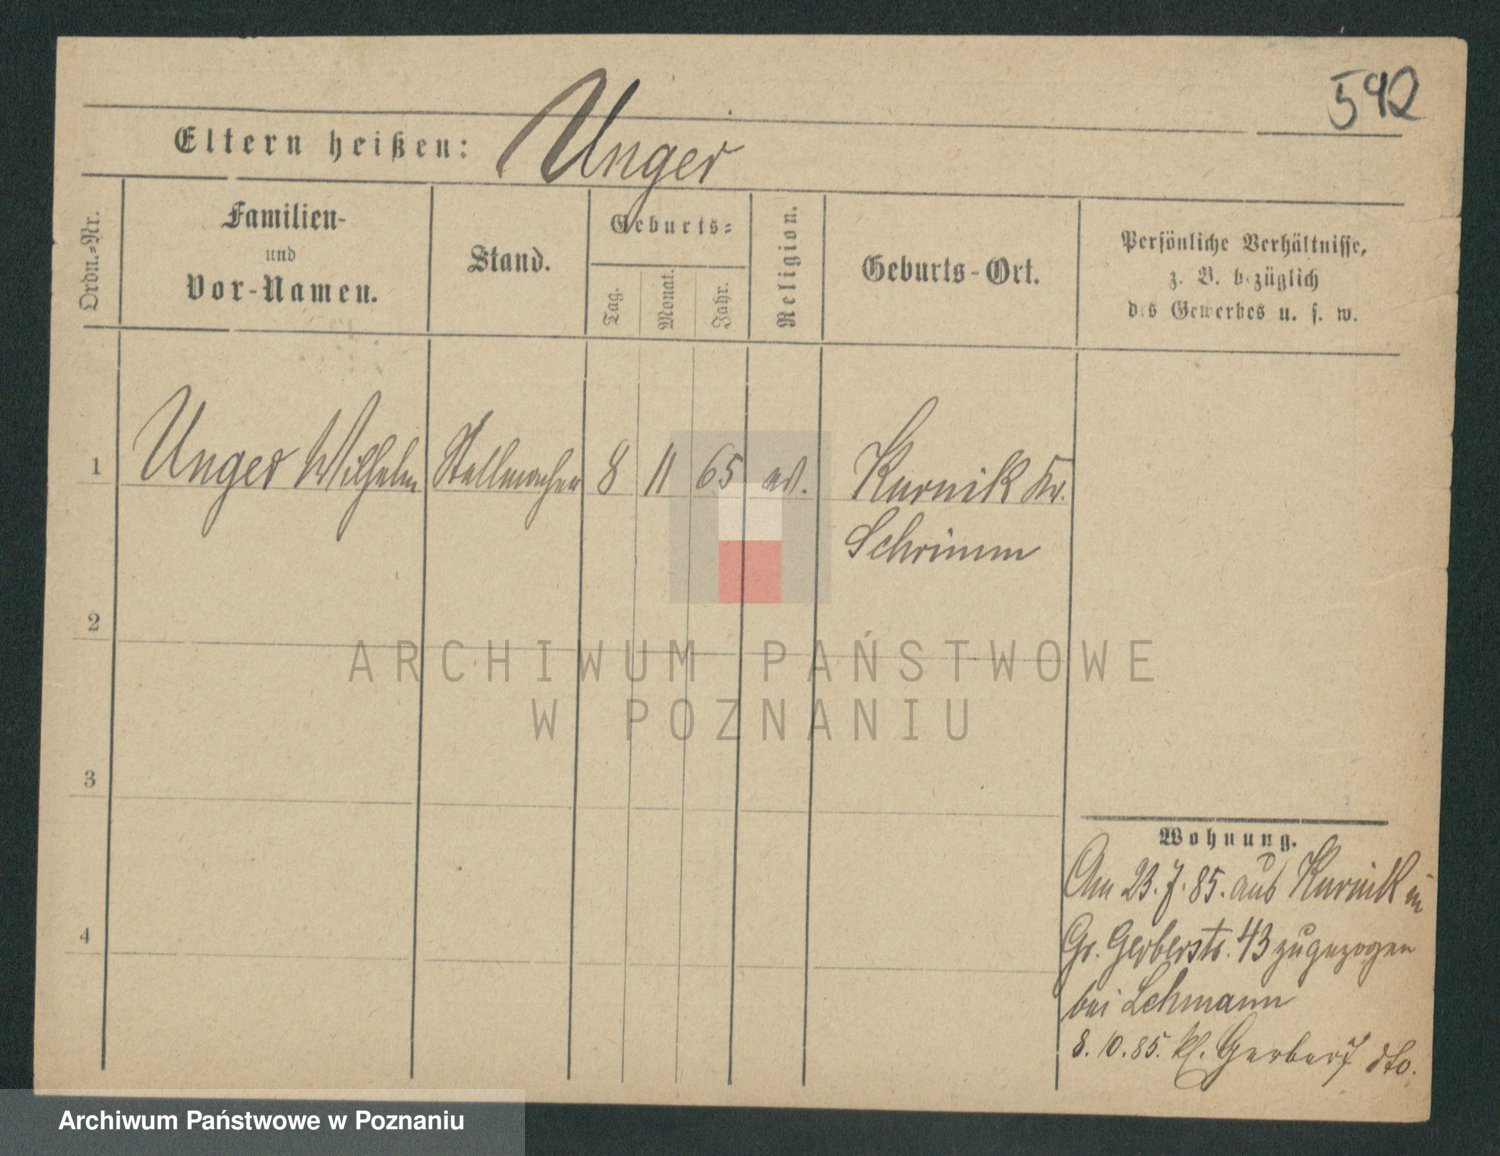 592
Eltern heißen: Unger
Ordn.-Nr.
Familien-
und
Vor-Namen.
Stand.
Geburts-
Tag.
Monat.
Jahr.
Religion.
Geburts-Ort.
Persönliche Verhältnisse,
z. B. bezüglich
des Gewerbes u. s. w.
1 Unger Wilhelm Stellmacher 8 11 65 ev. Kurnik Kr.
Schrimm
2
3
4
Wohnung.
Am 23.7.85. aus Kurnik in
Gr. Gerberstr. 43 zugezogen
bei Lehmann
8.10.85. kl. Gerberst dto.
ARCHIWUM PAŃSTWOWE
W POZNANIU
Archiwum Państwowe w Poznaniu